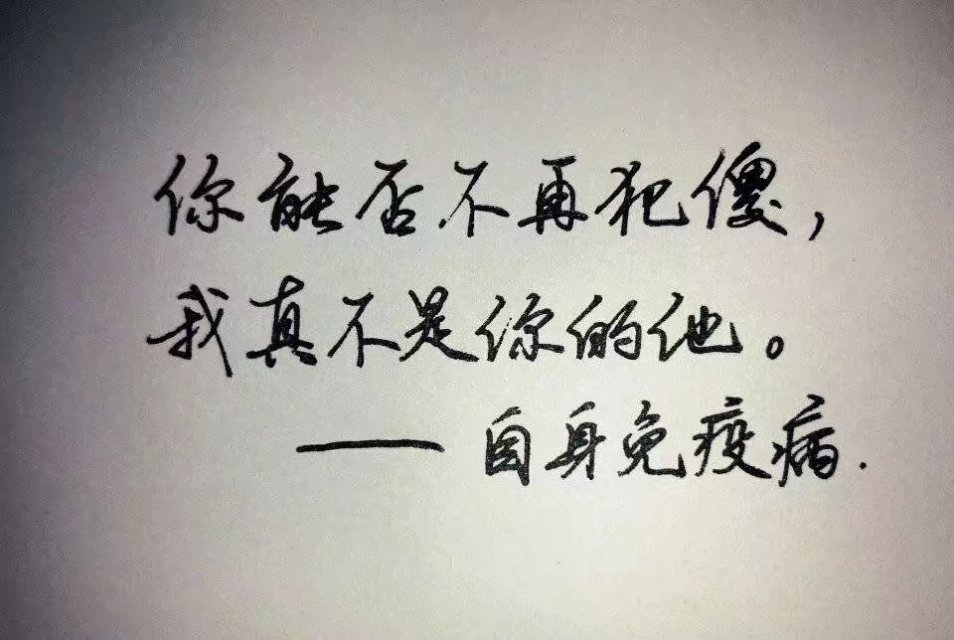 你能否不再犯傻，
我真不是你的他。
——自身免疫病.